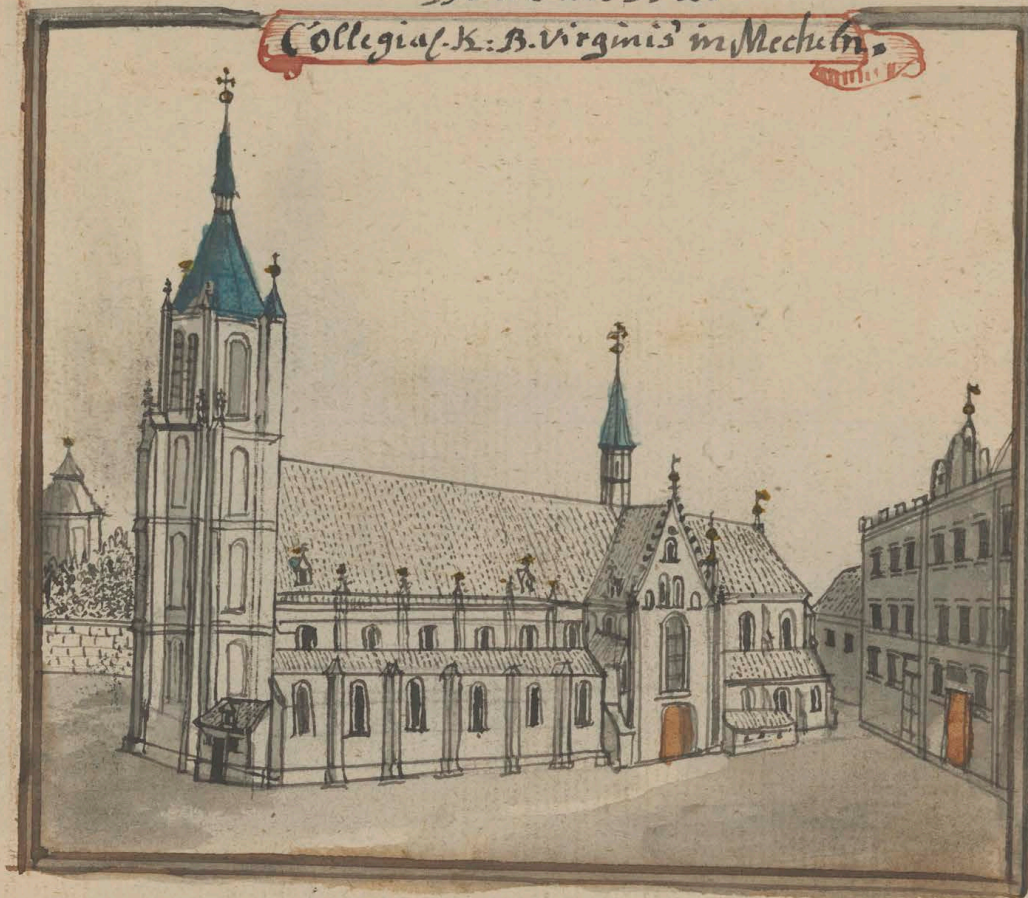 Collegial. K: B. Virginis in Mecheln.